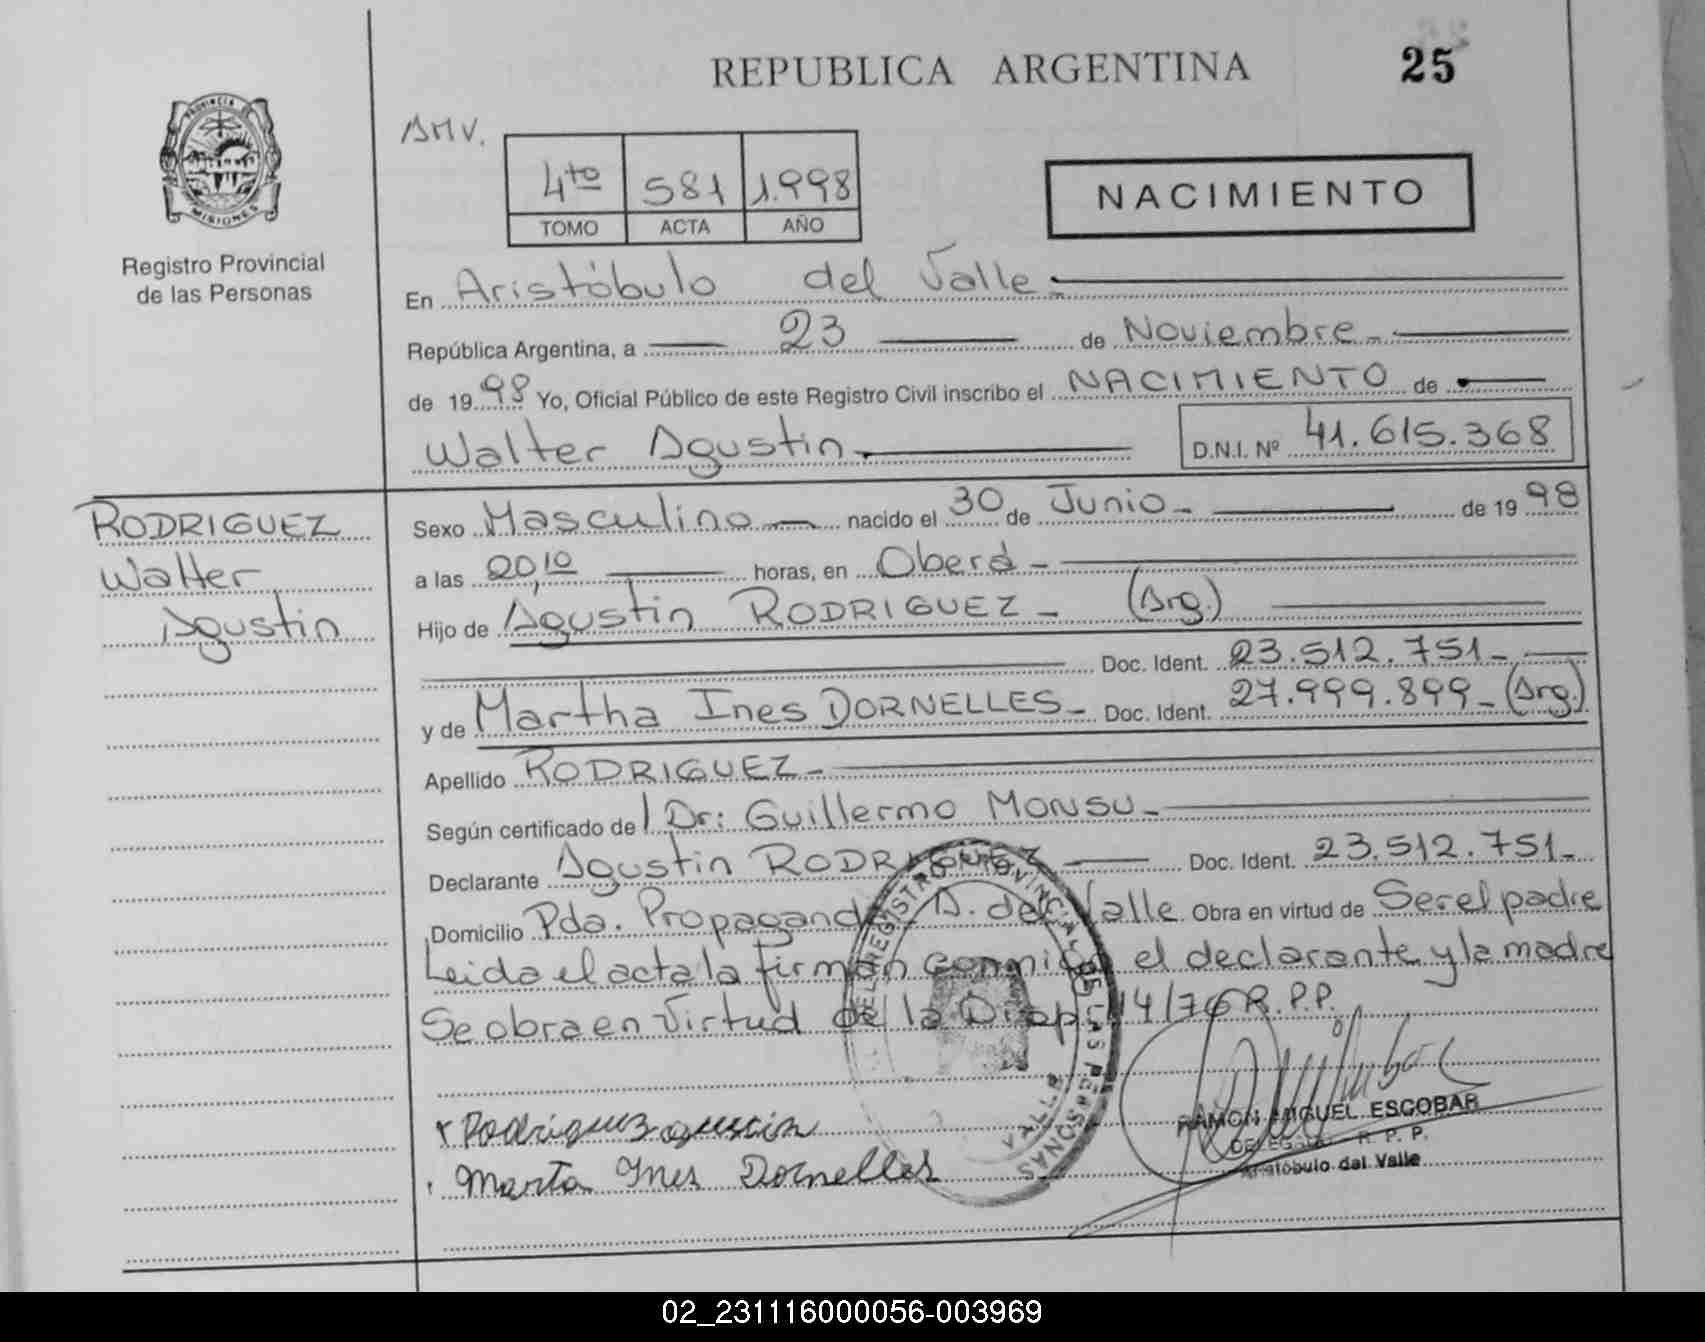 REPUBLICA ARGENTINA
25
PROVINCIA DE
MISIONES
Registro Provincial
de las Personas
AMV.
4to 581 1.998
TOMO ACTA AÑO
NACIMIENTO
En Aristóbulo del Valle
República Argentina, a 23 de Noviembre
de 1998 Yo, Oficial Público de este Registro Civil inscribo el NACIMIENTO de
Walter Agustin
D.N.I. Nº 41.615.368
RODRIGUEZ
Walter
Agustin
Sexo Masculino nacido el 30 de Junio de 1998
a las 20,10 horas, en Oberá
Hijo de Agustin RODRIGUEZ (Arg.)
Doc. Ident. 23.512.751
y de Martha Ines DORNELLES Doc. Ident. 27.999.899 (Arg.)
Apellido RODRIGUEZ
Según certificado del Dr: Guillermo MONSU
Declarante Agustin RODRIGUEZ Doc. Ident. 23.512.751
Domicilio Pda. Propaganda A. del Valle Obra en virtud de Ser el padre
Leida el acta la firman conmigo el declarante y la madre
Se obra en virtud de la Disp. 14/76 R.P.P.
Rodriguez agustin
Marta Ines Dornelles
REGISTRO PROVINCIAL DE LAS PERSONAS
VALLE
RAMON MIGUEL ESCOBAR
R. P. P.
Aristóbulo del Valle
02_231116000056-003969